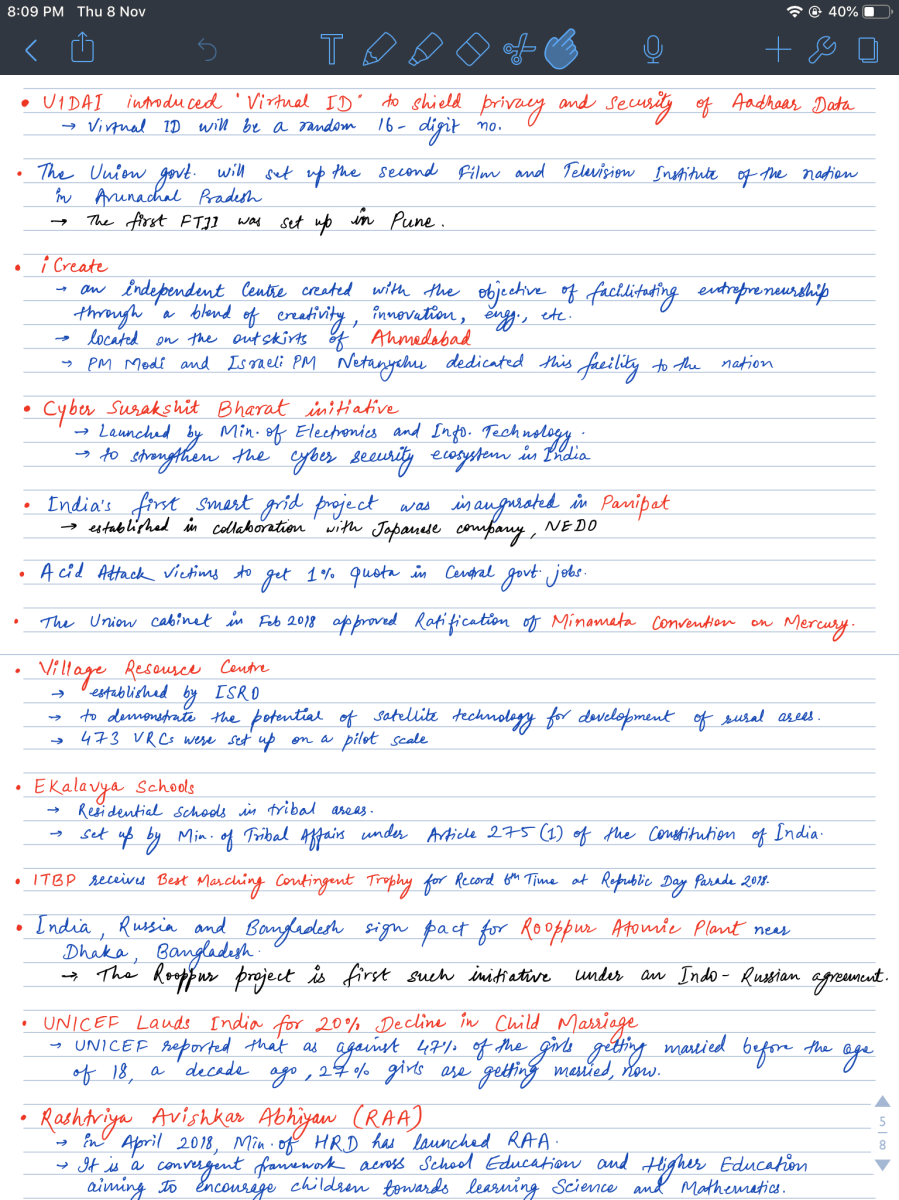 8:09 PM Thu 8 Nov
40%
T
• UIDAI introduced 'Virtual ID' to shield privacy and security of Aadhaar Data
→ Virtual ID will be a random 16-digit no.
• The Union govt. will set up the second Film and Television Institute of the nation
in Arunachal Pradesh
→ The first FTII was set up in Pune.
• iCreate
→ an independent Centre created with the objective of facilitating entrepreneurship
through a blend of creativity, innovation, engg., etc.
→ located on the outskirts of Ahmedabad
→ PM Modi and Israeli PM Netanyahu dedicated this facility to the nation
• Cyber Surakshit Bharat initiative
→ Launched by Min. of Electronics and Info. Technology.
→ to strengthen the cyber security ecosystem in India
• India's first smart grid project was inaugurated in Panipat
→ established in collaboration with Japanese company, NEDO
• Acid Attack Victims to get 1% quota in Central govt. jobs.
• The Union cabinet in Feb 2018 approved Ratification of Minamata Convention on Mercury.
• Village Resource Centre
→ established by ISRO
→ to demonstrate the potential of satellite technology for development of rural areas.
→ 473 VRCs were set up on a pilot scale
• Ekalavya Schools
→ Residential schools in tribal areas.
→ set up by Min. of Tribal Affairs under Article 275 (1) of the Constitution of India.
• ITBP receives Best Marching Contingent Trophy for Record 6th Time at Republic Day Parade 2018.
• India, Russia and Bangladesh sign pact for Rooppur Atomic Plant near
Dhaka, Bangladesh.
→ The Rooppur project is first such initiative under an Indo-Russian agreement.
• UNICEF Lauds India for 20% Decline in Child Marriage
→ UNICEF reported that as against 47% of the girls getting married before the age
of 18, a decade ago, 27% girls are getting married, now.
• Rashtriya Avishkar Abhiyan (RAA)
→ in April 2018, Min. of HRD has launched RAA.
→ It is a convergent framework across School Education and Higher Education
aiming to encourage children towards learning Science and Mathematics.
5
8